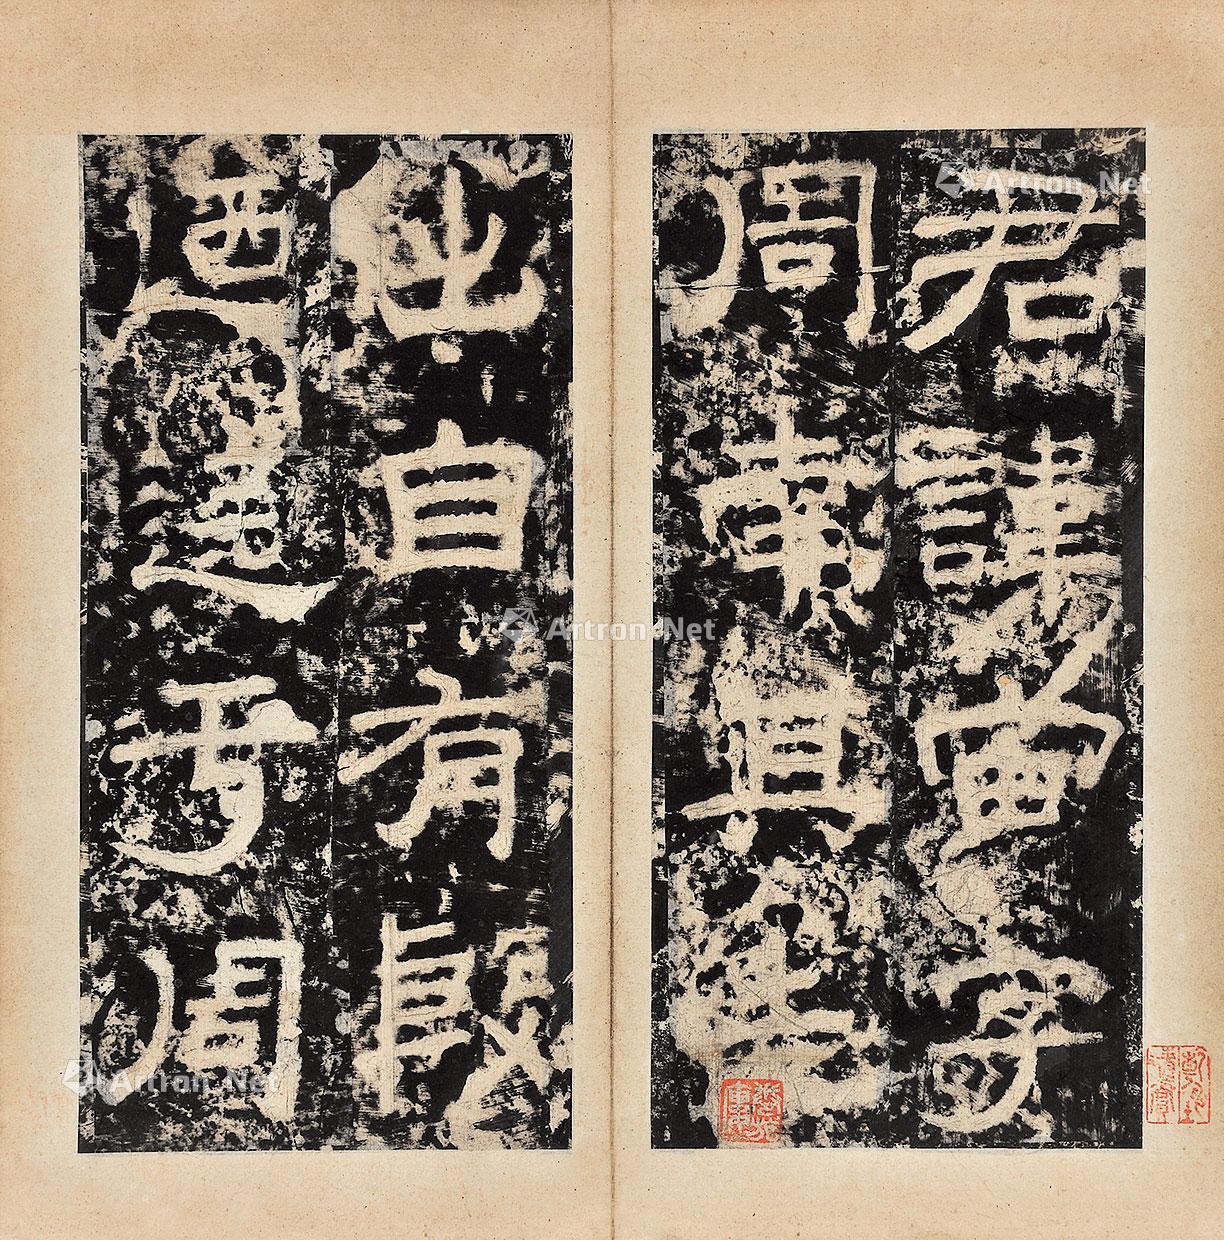 君諱宙字
周南其先
出自有殷
迺于周
Artron.Net
Artron.Net
Artron.Net